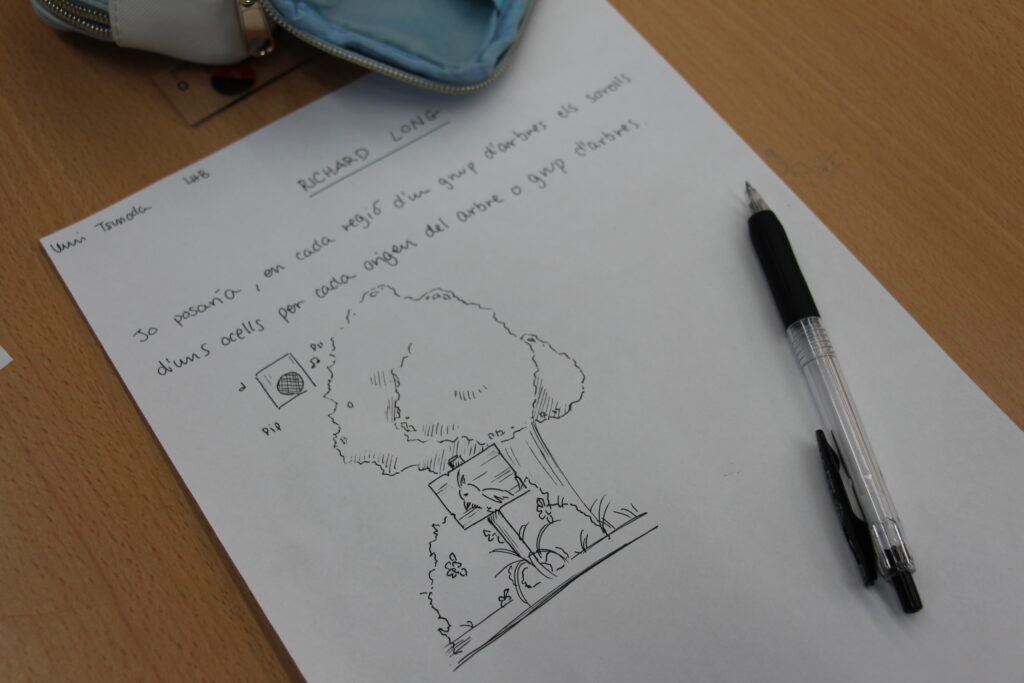 LHB
RICHARD LONG
Jo posaria, en cada regió d'un grup d'arbres els sorolls
d'uns ocells per cada origen del arbre o grup d'arbres.
PiP